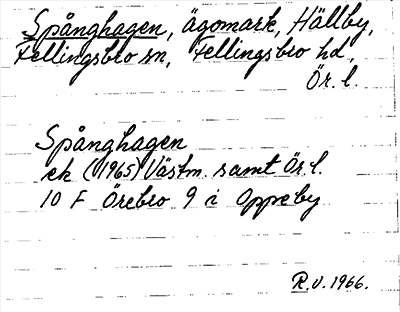 Spånghagen, ägomark, Hällby,
Fellingsbro sn, Fellingsbro hd,
Ör. l.
Spånghagen
ek (1965) Västm. samt Ör. l.
10 F Örebro 9 i Oppeby
R.V. 1966.